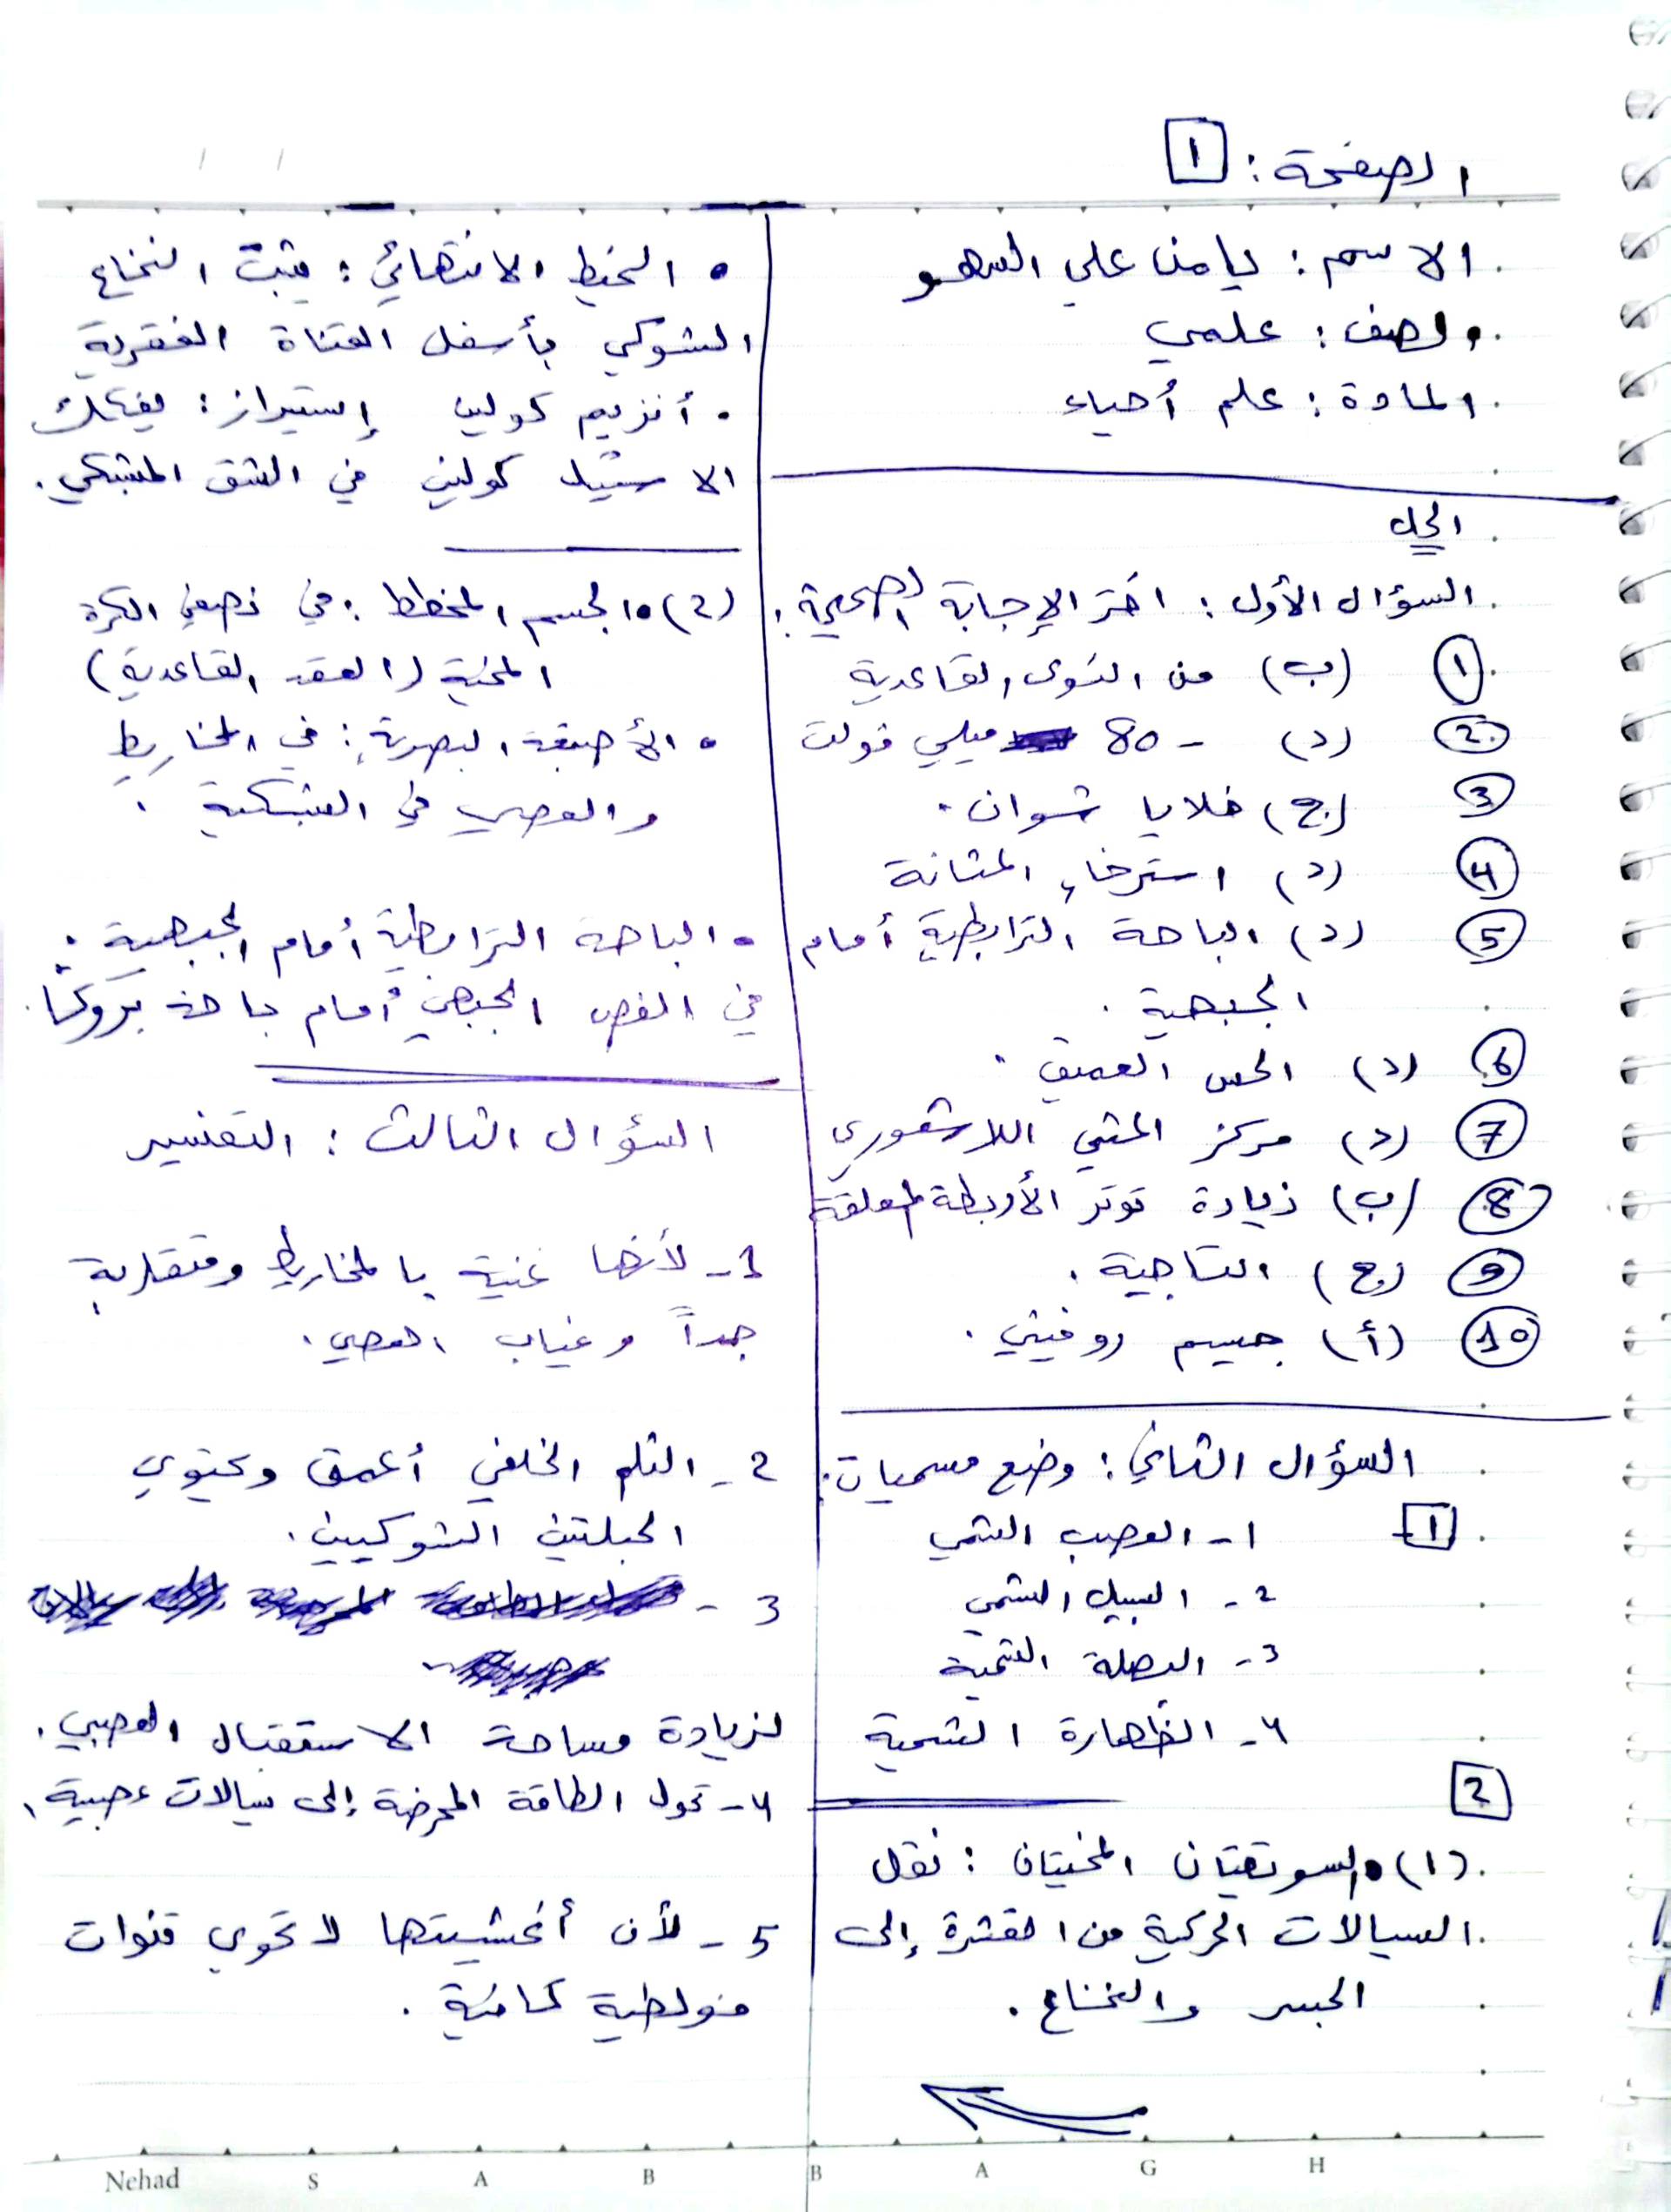 الصفحة : ١
الاسم : يامن علي السهو
الصف : علمي
المادة : علم أحياء
الحل
السؤال الأول : اختر الإجابة الصحيحة :
١ (ب) من النوى القاعدية
2 (د) - 80 ميلي فولت
3 (ج) خلايا شوان .
4 (د) استرخاء المثانة
5 (د) الباحة الترابطية أمام
الجبهية .
6 (د) الحس العميق .
7 (د) مركز المشي اللاشعوري
8 (ب) زيادة توتر الأربطة المعلقة
9 (ج) التاجية .
10 (أ) جسيم روفيني .
السؤال الثاني : وضع مسميات :
١
١ - العصب الشمي
2 - السبيل الشمي
3 - البصلة الشمية
4 - الظهارة الشمية
2
(١) • السويقتان المخيتان : نقل
السيالات الحركية من القشرة إلى
الجسر والنخاع .
• الخيط الانتهائي : يثبت النخاع
الشوكي بأسفل القناة الفقرية
• أنزيم كولين إستيراز : يفكك
الاستيل كولين في الشق المشبكي .
(2) • الجسم المخطط : في نصفي الكرة
المخية (العقد القاعدية)
• الأصبغة البصرية : في المخاريط
والعصي في الشبكية .
• الباحة الترابطية أمام الجبهية :
في الفص الجبهي أمام باحة بروكا .
السؤال الثالث : التفسير
1 - لأنها غنية بالمخاريط ومتقاربة
جداً وغياب العصي .
2 - الثلم الخلفي أعمق ويحتوي
الحبلتين الشوكيين .
3 -
لزيادة مساحة الاستقبال العصبي .
4 - تحول الطاقة المحرضة إلى سيالات عصبية .
5 - لأن أغشيتها لا تحوي قنوات
فولطية كافية .
Nehad S A B B A G H